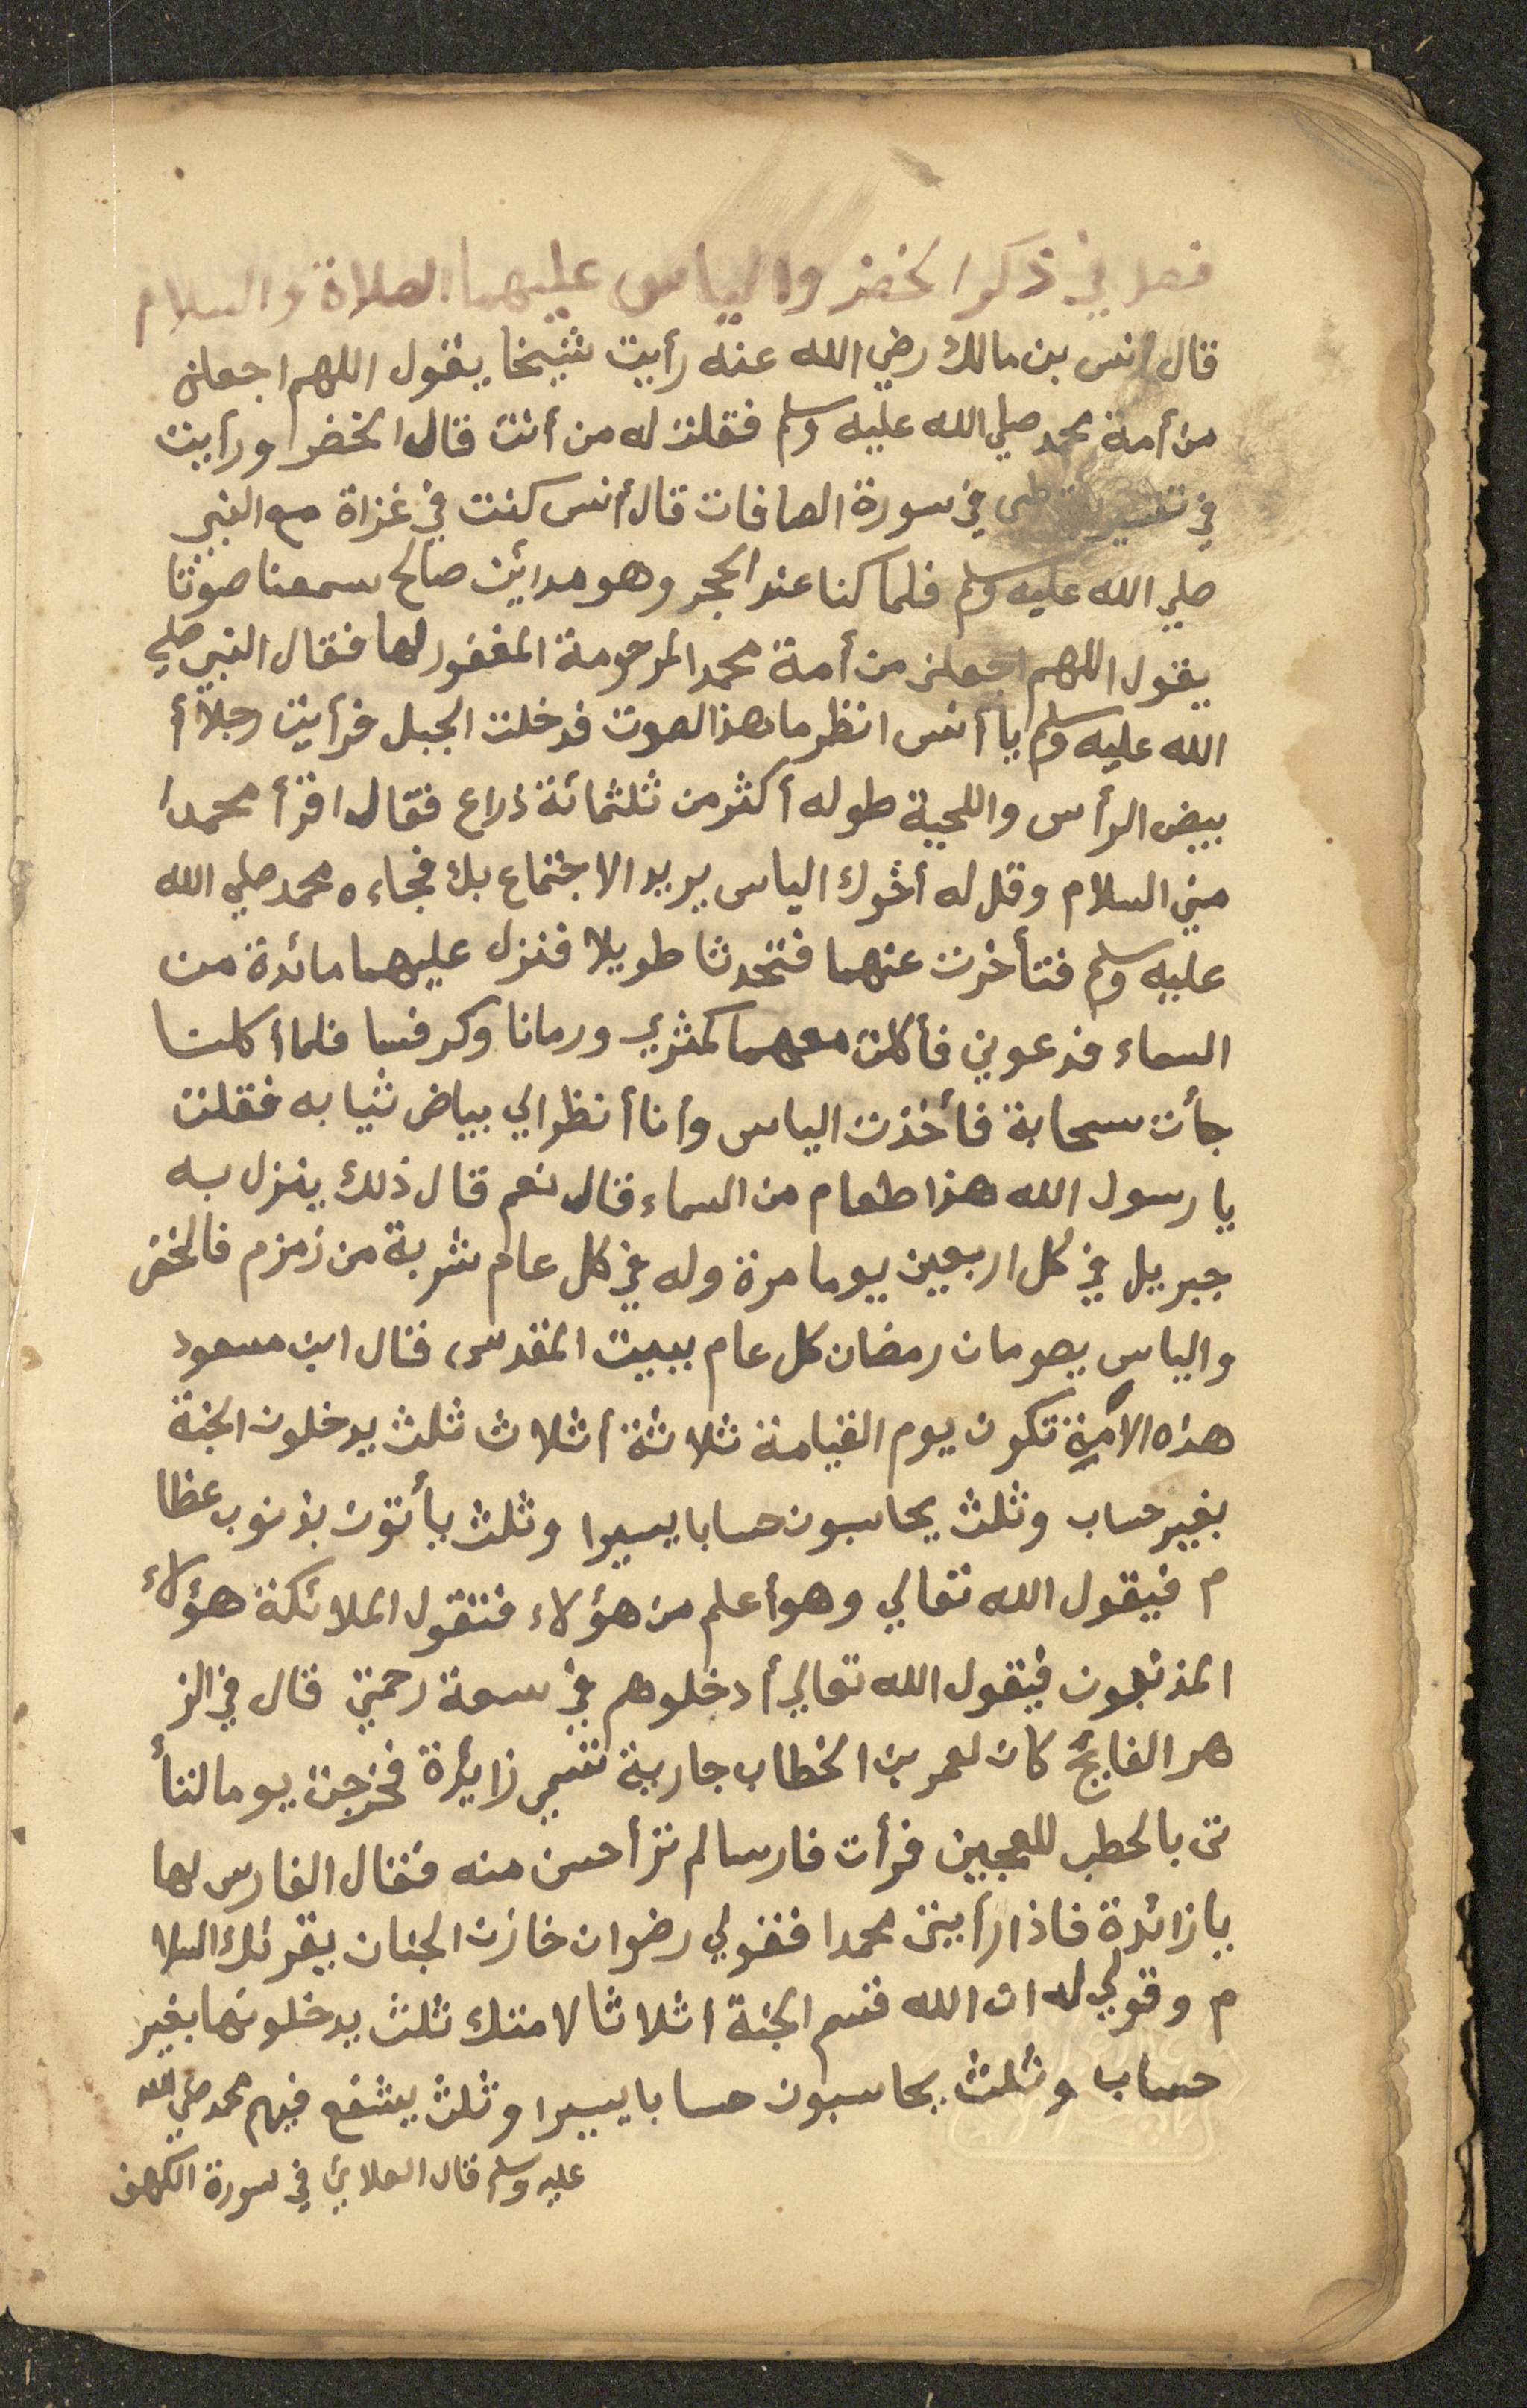 فصل في ذكر الخضر والياس عليهما الصلاة والسلام
قال انس بن مالك رضي الله عنه رأيت شيخا يقول اللهم اجعلني
من أمة محمد صلي الله عليه وسلم فقلت له من أنت قال الخضر ورأيت
في تفسير القرطبي في سورة الصافات قال أنس كنت في غزاة مع النبي
صلي الله عليه وسلم فلما كنا عند الحجر وهو مدائن صالح سمعنا صوتا
يقول اللهم اجعلني من أمة محمد المرحومة المغفور لها فقال النبي صلي
الله عليه وسلم يا أنس انظر ما هذا الصوت فدخلت الجبل فرأيت رجلا أ
بيض الرأس واللحية طوله أكثر من ثلثمائة ذراع فقال اقرأ محمدا
مني السلام وقل له أخوك الياس يريد الاجتماع بك فجاءه محمد صلي الله
عليه وسلم فتأخرت عنهما فتحدثا طويلا فنزل عليهما مائدة من
السماء فدعوني فأكلت معهما كمثري ورمانا وكرفسا فلما أكلنا
جأت سحابة فأخذت الياس وأنا أنظر الي بياض ثيابه فقلت
يا رسول الله هذا طعام من السماء قال نعم قال ذلك ينزل به
جبريل في كل اربعين يوما مرة وله في كل عام شربة من زمزم فالخضر
والياس يصومان رمضان كل عام ببيت المقدس، قال ابن مسعود
هذه الأمة تكون يوم القيامة ثلاثة أثلاث ثلث يدخلون الجنة
بغير حساب وثلث يحاسبون حسابا يسيرا وثلث يأتون بذنوب عظا
م فيقول الله تعالي وهو أعلم من هؤلاء فتقول الملائكة هؤلاء
المذنبون فيقول الله تعالي أدخلوهم في سعة رحمتي قال في الز
هر الفايح كان لعمر بن الخطاب جارية تسمي زايدة فخرجت يوما لتأ
تى بالحطب للعجين فرأت فارسا لم تر أحسن منه فقال الفارس لها
يا زائدة فاذا رأيتي محمدا فقولي رضوان خازن الجنان يقرئك السلا
م وقولي له ان الله قسم الجنة اثلاثا لامتك ثلث يدخلونها بغير
حساب وثلث يحاسبون حسابا يسيرا وثلث يشفع فيهم محمد صلي الله
عليه وسلم قال العلائي في سورة الكهف